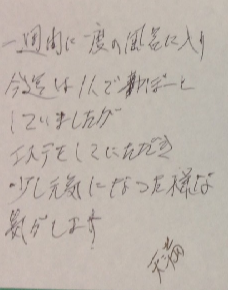 一週間に一度の風呂に入り
今迄は1人で ぼーと
していましたが
エステをしていただき
少し元気になった様な
気がします